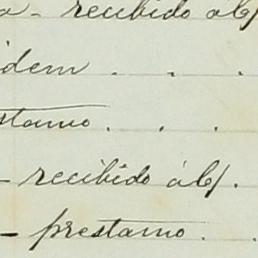 a - recibido a b/
idem . . .
stamo . . .
- recibido á b/.
- prestamo . .